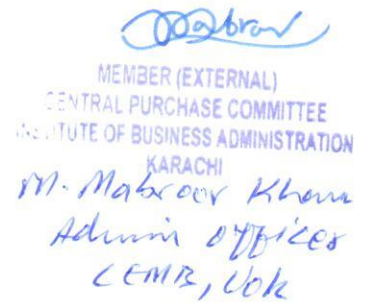 Mabroor
MEMBER (EXTERNAL)
CENTRAL PURCHASE COMMITTEE
INSTITUTE OF BUSINESS ADMINISTRATION
KARACHI
M. Mabroor Khan
Admin Officer
CEMB, UoK